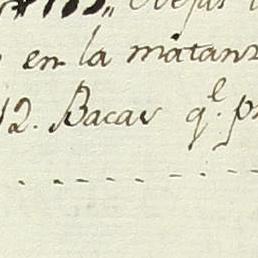 Ovejas
en la matanz
12. Bacas q.e p